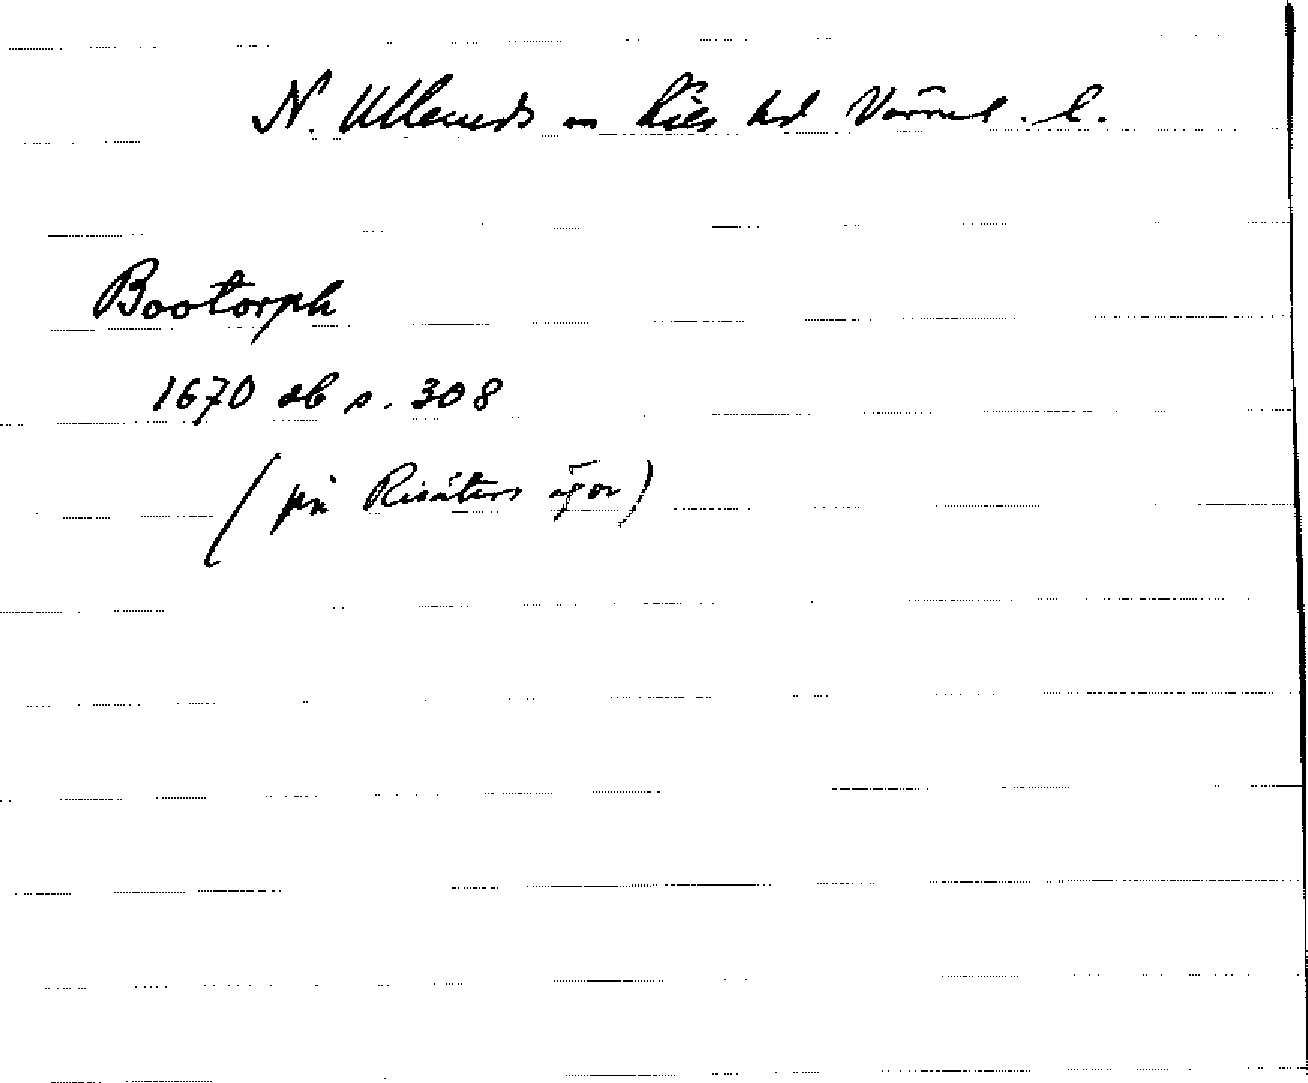 N. Ulleruds sn Kils hd Värml. l.
Bootorph
1670 sb s. 308
(på Risäters ägor)